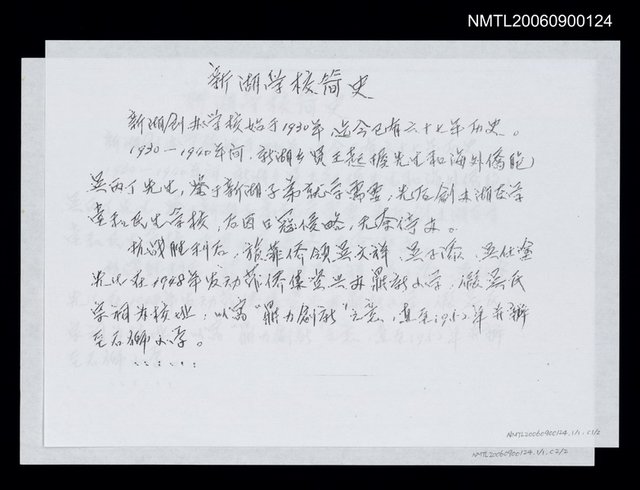 NMTL20060900124
新湖学校简史
新湖创办学校始于1930年，迄今已有六十七年历史。
1930—1940年间，新湖乡贤王起振先生和海外侨胞
吴丙丁先生，鉴于新湖子弟就学需要，先后创办湖
和民生学校，后因日寇侵略，无奈停办。
抗战胜利后，旅菲侨领吴文祥、吴子添、吴仕
先生在1948年发动菲侨集资兴办鼎新小学，假吴氏
学祠为校址，以寓“鼎力创新”之意，直至1952年
至石狮小学。
......
NMTL20060900124.1/1.c1/2
NMTL20060900124.1/1.c2/2